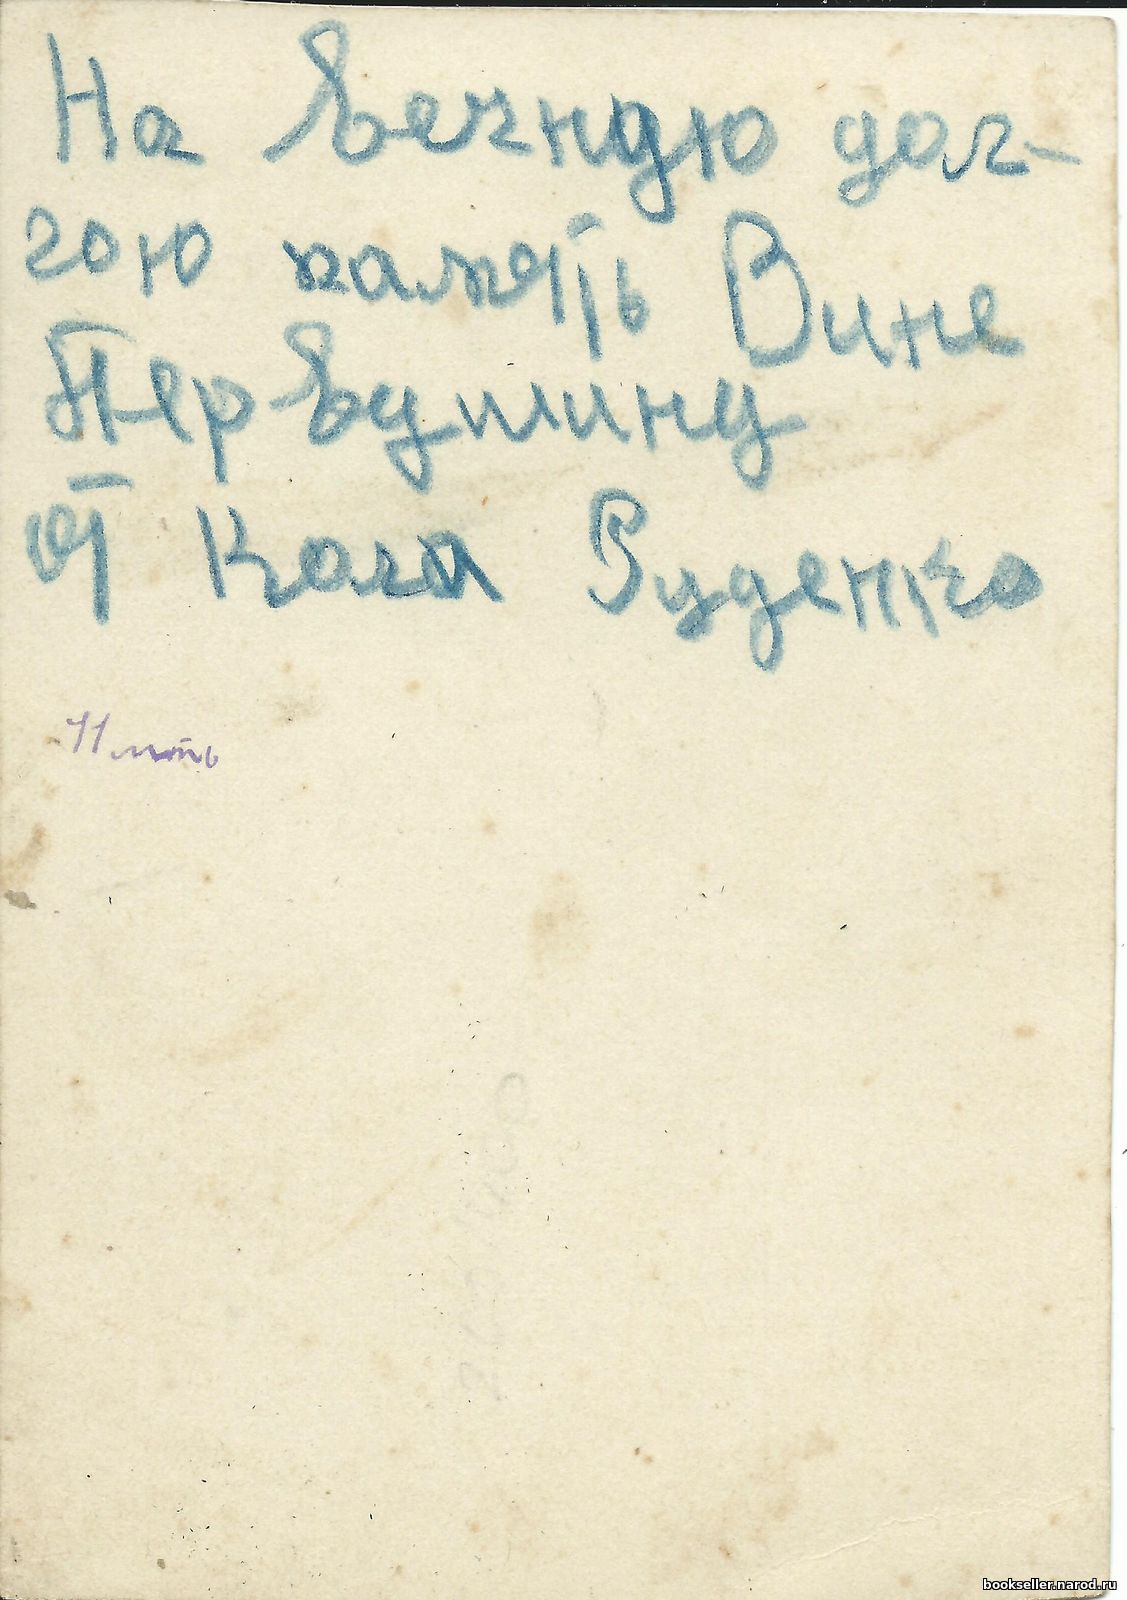 На вечную дол-
гою память Вине
Первушину
от Коли Руденко
bookseller.narod.ru